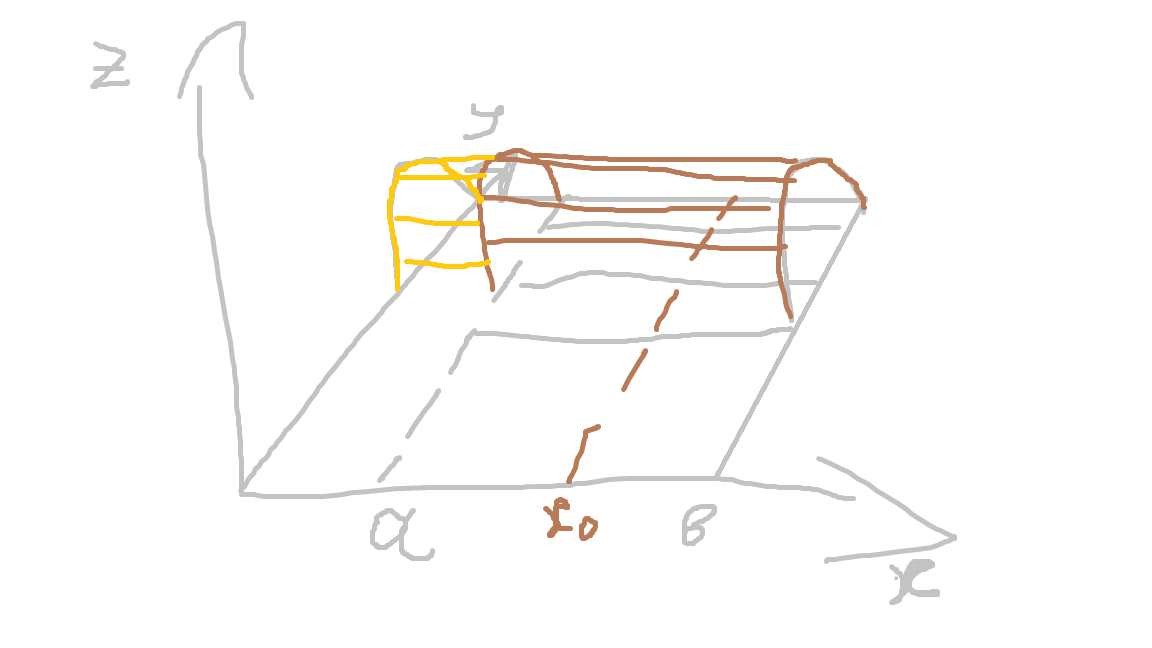 z
y
a x₀ b
x